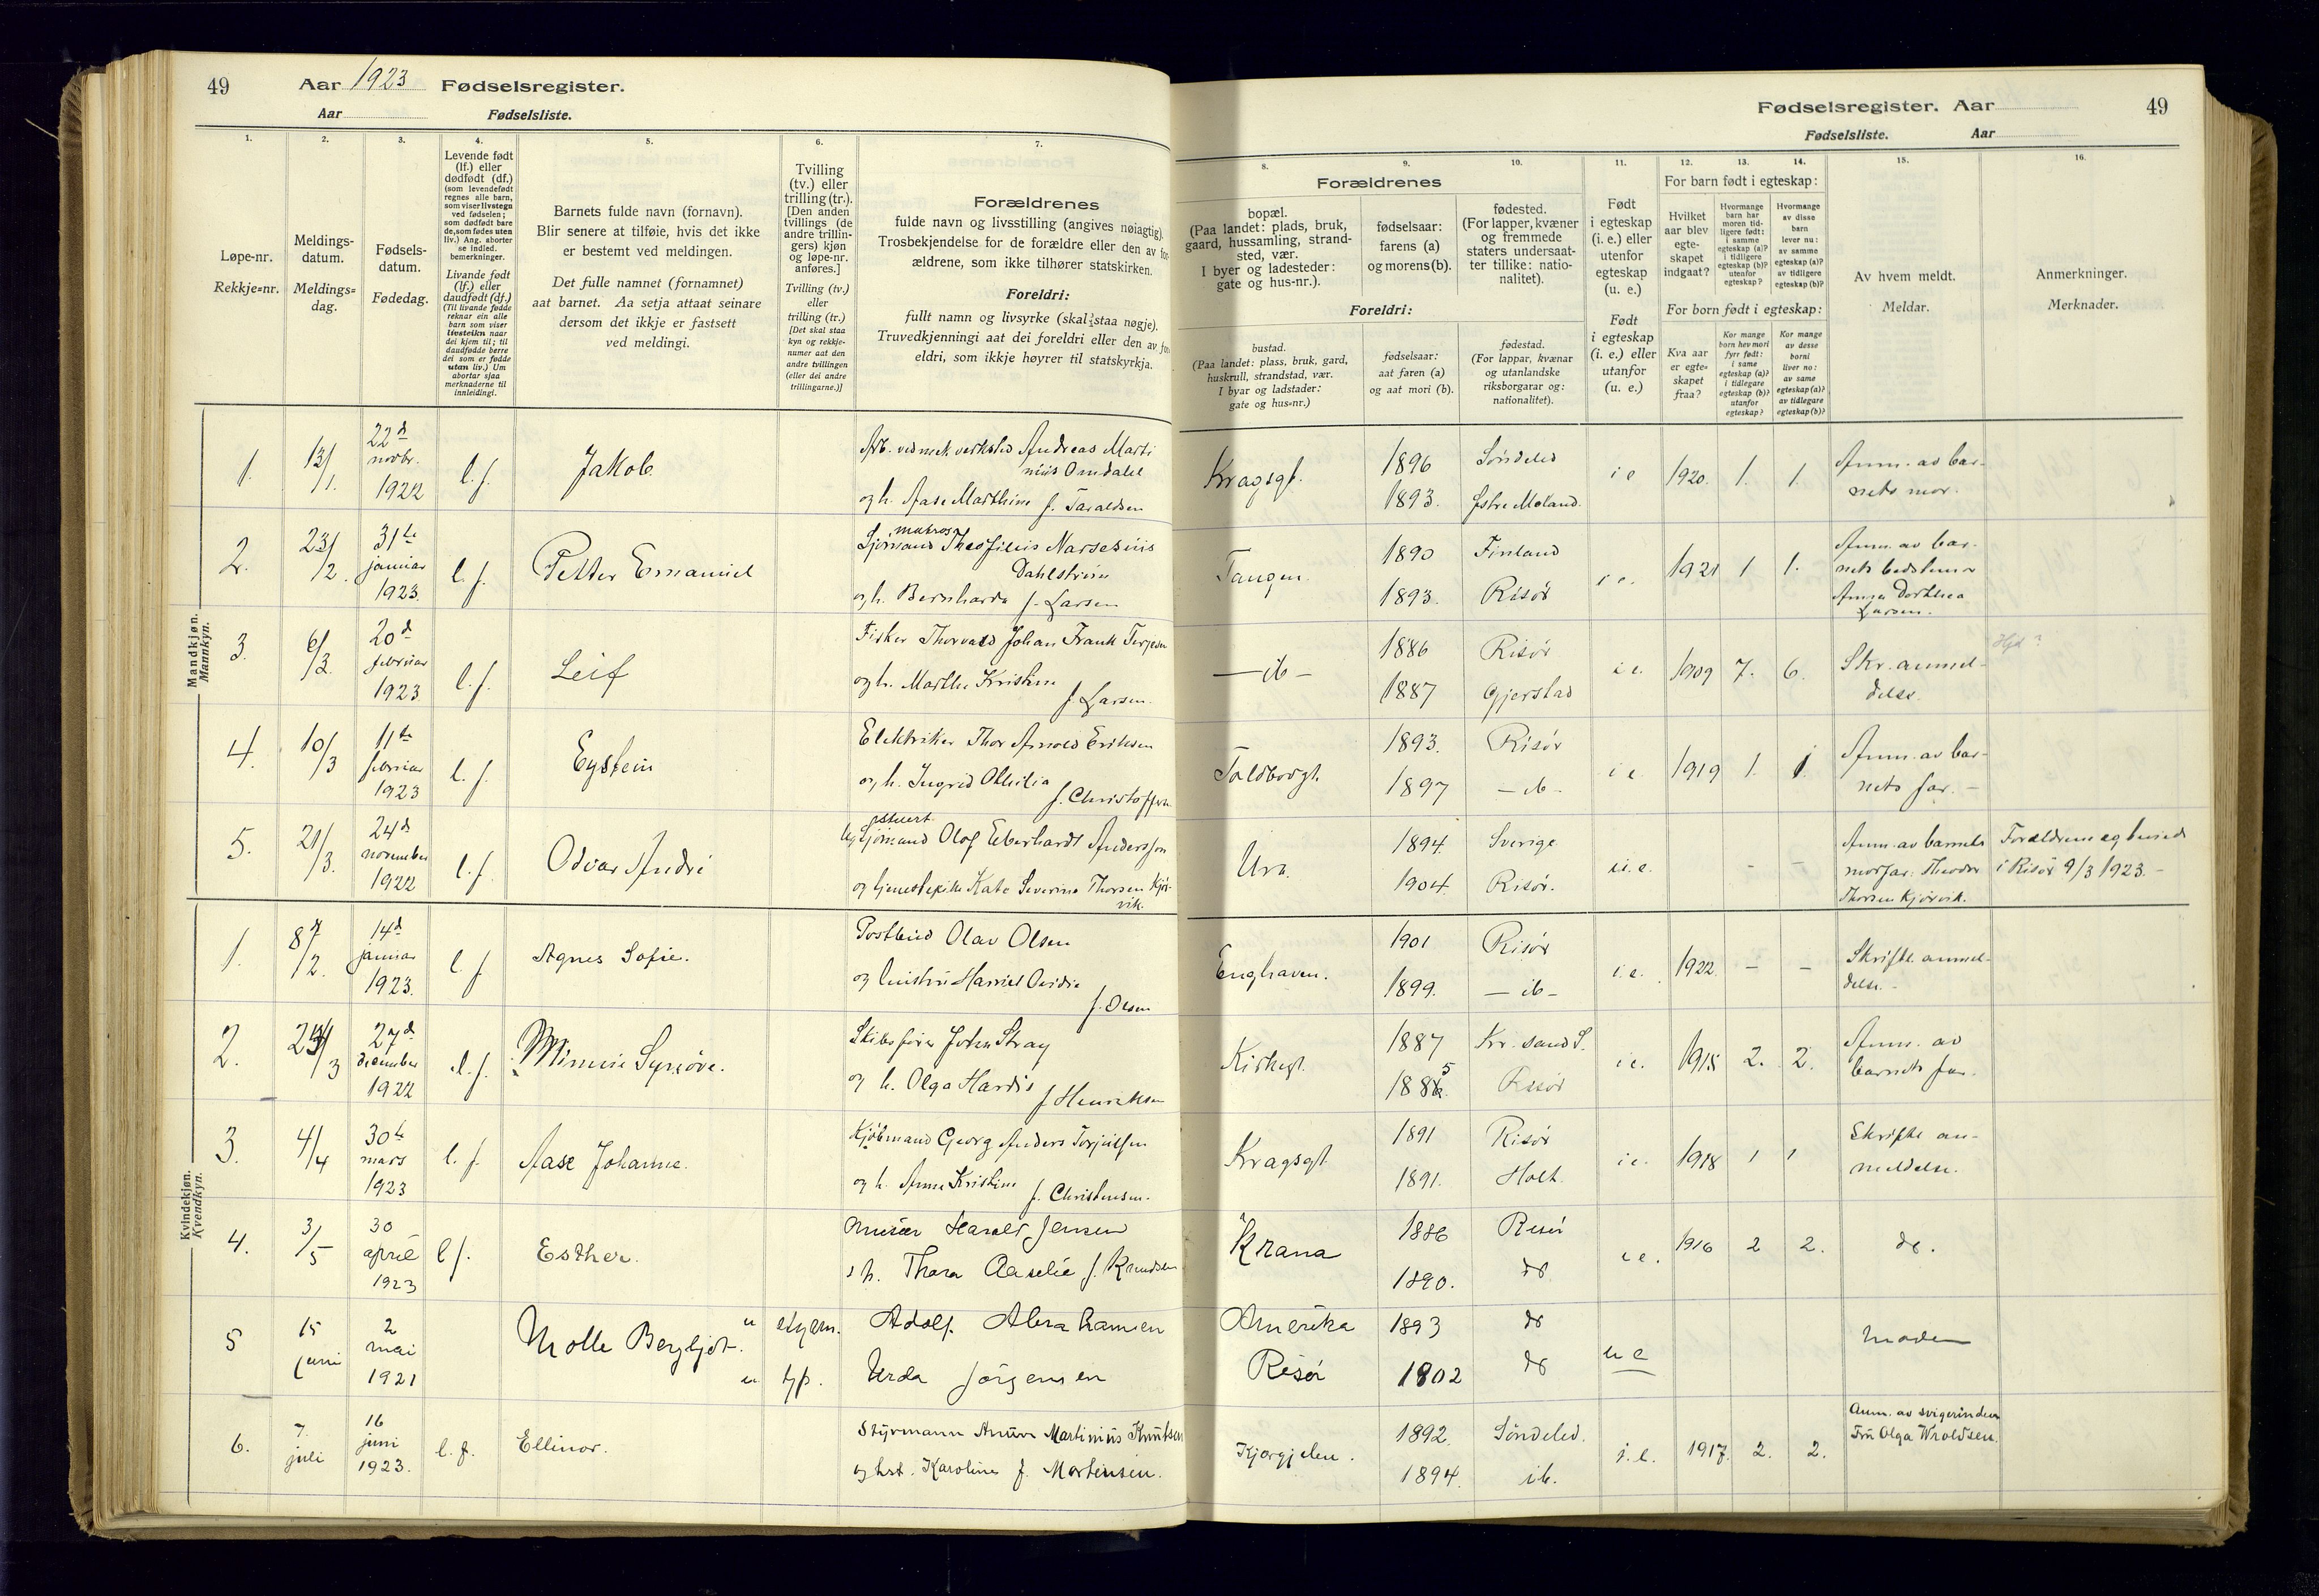 49
Aar 1923 Fødselsregister.
Aar Fødselsliste.
Fødselsregister. Aar
49
Fødselsliste. Aar
1.
Løpe-nr.
Rekkje-nr.
2.
Meldings-
datum.
Meldings-
dag.
3.
Fødsels-
datum.
Fødedag.
4.
Levende født
(lf.) eller
dødfødt (df.)
(som levendefødt
regnes alle barn,
som viser livstegn
ved fødselen;
som dødfødt bare
de, som fødes uten
liv.) Ang. aborter
se indled.
bemerkninger.
Livande født
(lf.) eller
daudfødt (df.)
(Til livande fødde
reknar ein alle
barn som viser
livsteikn naar
dei kjem til; til
daudfødde berre
dei som er fødde
utan liv.) Um
abortar sjaa
merknaderne til
innleidingi.
5.
Barnets fulde navn (fornavn).
Blir senere at tilføie, hvis det ikke
er bestemt ved meldingen.
Det fulle namnet (fornamnet)
aat barnet. Aa setja attaat seinare
dersom det ikkje er fastsett
ved meldingi.
6.
Tvilling
(tv.) eller
trilling (tr.).
[Den anden
tvillings (de
andre trillin-
gers) kjøn
og løpe-nr.
anføres.]
Tvilling (tv.)
eller
trilling (tr.)
[Det skal staa
kyn og rekkje-
numer aat den
andre tvillingen
(eller dei andre
trillingarne.)]
7.
Forældrenes
fulde navn og livsstilling (angives nøiagtig).
Trosbekjendelse for de forældre eller den av for-
ældrene, som ikke tilhører statskirken.
Foreldri:
fullt namn og livsyrke (skal staa nøgje).
Truvedkjenningi aat dei foreldri eller den av for-
eldri, som ikkje høyrer til statskyrkja.
8.
Forældrenes
bopæl.
(Paa landet: plads, bruk,
gaard, hussamling, strand-
sted, vær.
I byer og ladesteder:
gate og hus-nr.).
Foreldri:
bustad.
(Paa landet: plass, bruk, gard,
huskrull, strandstad, vær.
I byar og ladstader:
gate og hus-nr.)
9.
fødselsaar:
farens (a)
og morens (b).
fødselsaar:
aat faren (a)
og aat mori (b).
10.
fødested.
(For lapper, kvæner
og fremmede
staters undersaat-
ter tillike: natio-
nalitet).
fødestad.
(For lappar, kvænar
og utanlandske
riksborgarar og:
nationalitet).
11.
Født
i egteskap
(i. e.) eller
utenfor
egteskap
(u. e.)
Født
i egteskap
(i. e.) eller
utanfor
egteskap
(u. e.)
12. 13. 14.
For barn født i egteskap:
Hvilket
aar blev
egte-
skapet
indgaat?
Hvormange
barn har
moren tid-
ligere født:
i samme
egteskap (a)?
i tidligere
egteskap (b)?
utenfor
egteskap?
Hvormange
av disse
barn
lever nu:
av samme
egteskap (a)?
av tidligere
egteskap (b)?
For born født i egteskap:
Kva aar
er egte-
skapet
fraa?
Kor mange
born hev mori
fyrr født:
i same
egteskap (a)?
i tidlegare
egteskap (b)?
utanfor
egteskap?
Kor mange
av desse
borni
liver no:
av same
egteskap (a)?
av tidlegare
egteskap (b)?
15.
Av hvem meldt.
Meldar.
16.
Anmerkninger.
Merknader.
Mandkjøn.
Mannkyn.
1. 13/1. 22d novbr. 1922 l. f. Jakob. Arb. ved mek. verksted Andreas Marti
nius Omdalil
og h. Aase Marthine f. Taraldsen
Kragsgt. 1896 Søndeled i e 1920. 1. 1. Anm. av bar-
1893. Østre Moland. nets mor.
2. 23/2. 31te januar 1923. l. f. Petter Emanuel
matros
Sjømand Theofilius Narsesius
Dahlström
og h. Bernharda f. Larsen
Tangen. 1890 Finland i e. 1921 1 1. Anm. av bar-
1893. Risør nets bedstemor
Anna Dorthea
Larsen.
3. 6/3. 20d februar 1923 l. f. Leif Fisker Thorvald Johan Frank Terjesen
og h. Marthe Kristine
f. Larsen.
— ib — 1886 Risør i e. 1909 7. 6. Skr. anmel-
1887 Gjerstad delse.
4. 10/3 11te februar 1923 l. f. Eystein Elektriker Thor Arnold Eriksen
og h. Ingrid Othilia
f. Christoffersen
Toldbodgt. 1893. Risør i e. 1919 1. 1. Anm. av bar-
1897 — ib — nets far. —
5. 21/3. 24d november 1922 l. f. Odvar André
stuert
Sjømand Olof Eberhardt Andersson
og tjenestepike Kate Severine Thorsen Kjør-
vik.
Ura. 1894. Sverige u. e. - - Anm. av barnets
1904. Risør. morfar: Theodor
Thorsen Kjørvik.
Forældrene egteviet
i Risør 9/3 1923. —
Kvindekjøn.
Kvendkyn.
1. 8/2. 14d januar 1923. l. f. Agnes Sofie. Postbud Olav Olsen
og hustru Harriet Ovidia
f. Olsen
Enghaven. 1901 Risør i e. 1922. — — Skriftl. anmel-
1899. — ib — delse. —
2. /3 27d december 1922 l. f. Minnie Synnøve. Skibsfører John Stray
og h. Olga Hardis
f. Henriksen
Kirkegt. 1887 Kr. sand S. i e. 1915 2. 2. Anm. av
1885 Risør barnets far.
3. 4/4 30te mars 1923 l. f. Aase Johanne. Kjøbmand Georg Anders Torjussen
og h. Anna Kristine f. Christensen.
Kragsgt. 1891 Risør i e. 1918 1 1 Skriftl. an-
1891. Holt. meldelse.
4. 3/5 30 april 1923 l f. Esther. Murer Harald Jensen
o h. Thora Aaselie f. Knudsen
Krana 1886 Risør i e. 1916 2 2. do.
1890. do
5 15 juni 2 mai 1921 Molle Bergljot. Adolf Abrahamsen
Urda Jörgensen
Amerika 1893 do u e Moden
Risør 1802 do
6. 7. juli 16 juni 1923. l. f. Ellinor. Styrmann Anunn Martinius Knutsen
og hst. Karoline f. Mortensen.
Kjærgjelen. 1892. Søndeled. i. e. 1917. 2. 2. Anm. av svigerinden
1894. ib. Fru Olga Wroldsen.